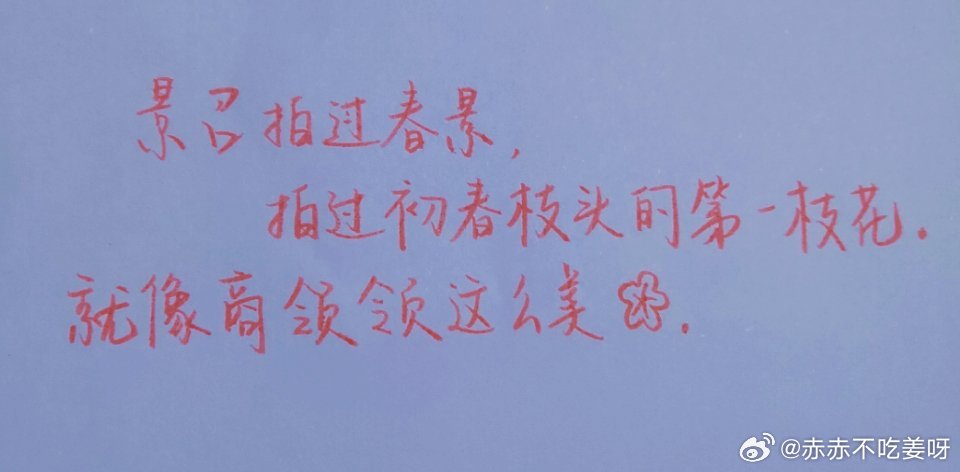 景召拍过春景,
拍过初春枝头的第一枝花.
就像商领领这么美.
@赤赤不吃姜呀